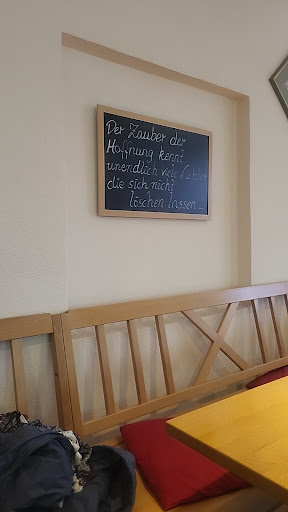 Der Zauber der
Hoffnung kennt
unendlich viele Lichter
die sich nicht
löschen lassen ...